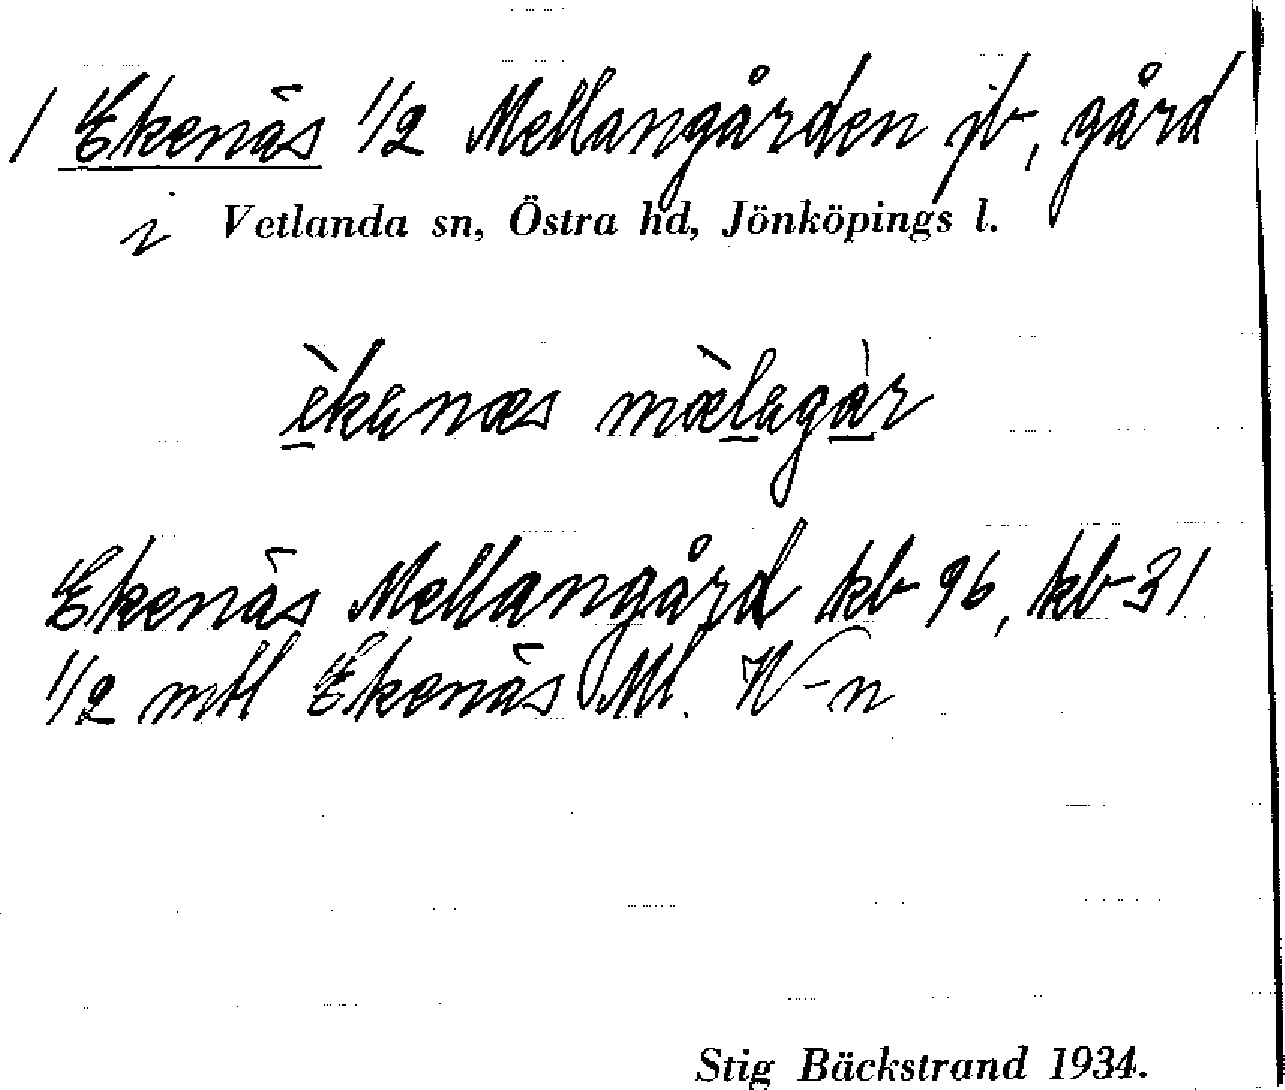 1 Ekenäs 1/2 Mellangården jb, gård
i Vetlanda sn, Östra hd, Jönköpings l.
èkanæs mæ̀lagàr
Ekenäs Mellangård kb 96, kb 31
1/2 mtl Ekenäs Ml. W-n
Stig Bäckstrand 1934.